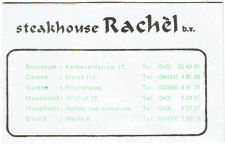 steakhouse Rachèl b.v.
Brunssum : Kerkeveldstraat 17, Tel. (045)
Geleen : Markt 114, Tel. (04494) 4 91 26
Geleen : Promenade, Tel. (04494) 4 91 26
Maastricht : Vrijthof 12, Tel. (043)
Maastricht : Achter het vleeshuis, Tel. (043)
Sittard : Markt 4, Tel.